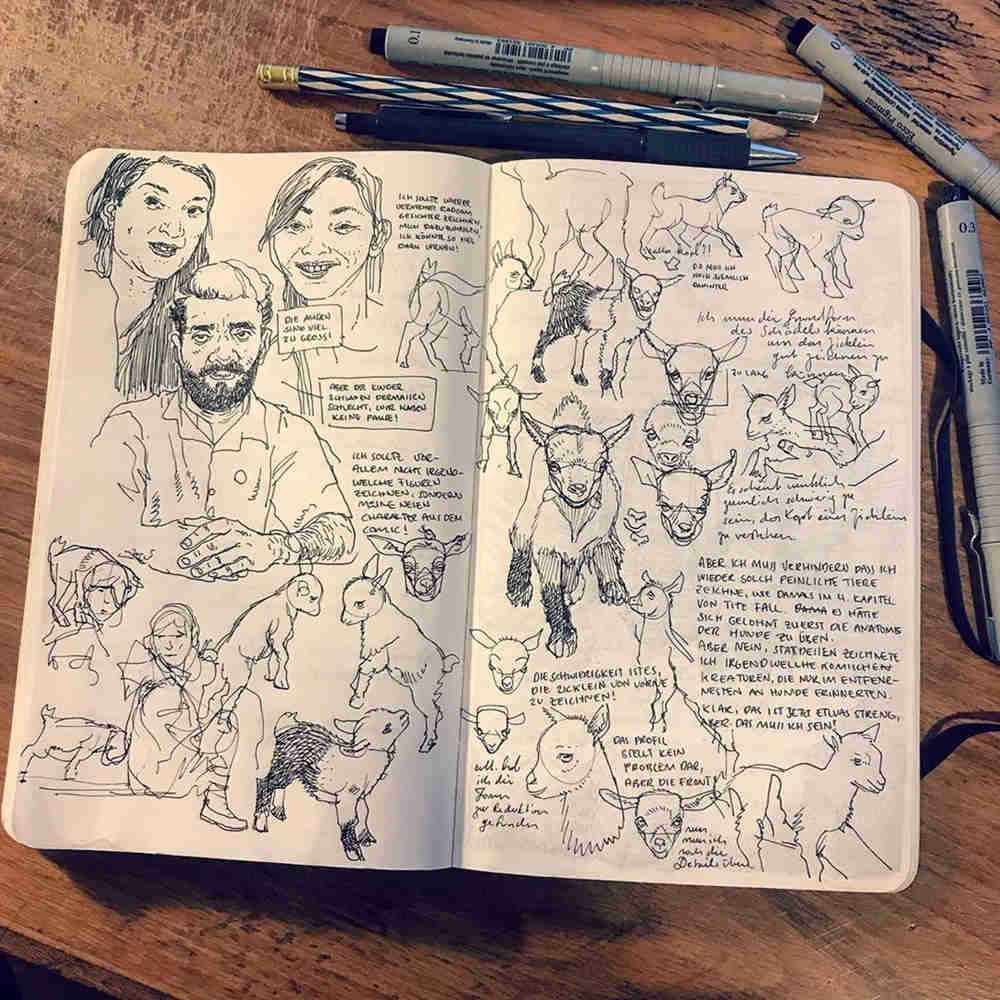 0.1
Made in Germany
0.3
Made in
ICH SOLLTE WIEDER
VERMEHRT RANDOM
GESICHTER ZEICHNEN,
ICH KÖNNTE SO VIEL
DARAN LERNEN!
DIE AUGEN
SIND VIEL
ZU GROSS!
ABER DIE KINDER
SCHLAFEN DERMASSEN
SCHLECHT, WIR HABEN
KEINE PAUSE!
ICH SOLLTE VOR-
ALLEM NICHT IRGEND-
WELCHE FIGUREN
ZEICHNEN, SONDERN
MEINE NEUEN
CHARAKTER AUS DEM
COMIC!
Kopf?!
DA MUSS ICH
NOCH ZIEMLICH
DAHINTER
Ich muss die Grundform
des Schädels kennen
um das Zicklein
gut zeichnen zu
können
ZU LANG
Es scheint wirklich
ziemlich schwierig zu
sein, den Kopf eines Zickleins
zu verstehen.
ABER ICH MUSS VERHINDERN DASS ICH
WIEDER SOLCH PEINLICHE TIERE
ZEICHNE, WIE DAMALS IM 4. KAPITEL
VON TITE FALL. ES HÄTTE
SICH GELOHNT ZUERST DIE ANATOMIE
DER HUNDE ZU ÜBEN.
ABER NEIN, STATTDESSEN ZEICHNETE
ICH IRGENDWELCHE KOMISCHEN
KREATUREN, DIE NUR IM ENTFERN-
TESTEN AN HUNDE ERINNERTEN.
KLAR, DAS IST JETZT ETWAS STRENG,
ABER DAS MUSS ICH SEIN!
DIE SCHWIERIGKEIT IST ES,
DIE ZICKLEIN VON VORNE
ZU ZEICHNEN!
DAS PROFIL
STELLT KEIN
PROBLEM DAR,
ABER DIE FRONT!
evtl. hab
ich die
Form
zur Reduktion
gefunden
nun
muss ich
noch die
Details üben